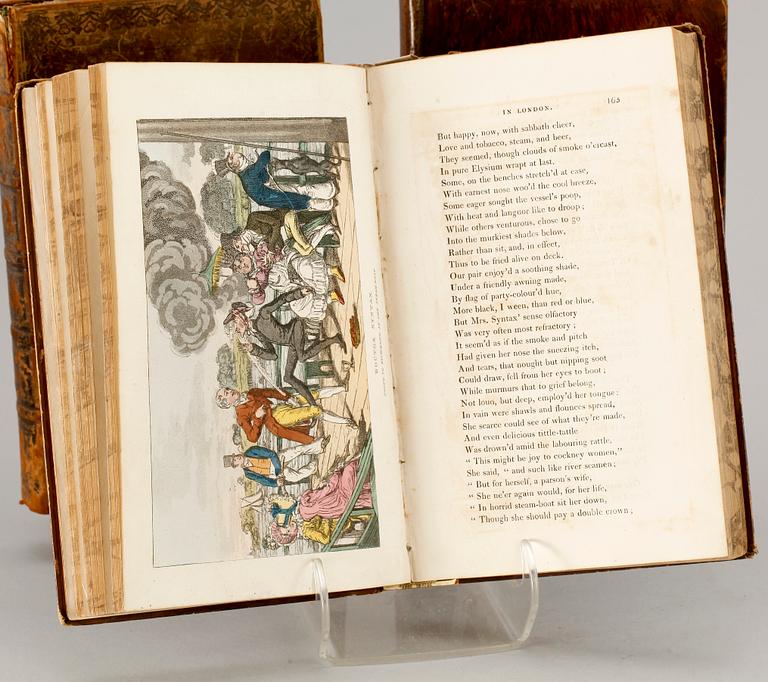 DOCTOR SYNTAX
IN LONDON. 163
But happy, now, with sabbath cheer,
Love and tobacco, steam, and beer,
They seemed, though clouds of smoke o'ercast,
In pure Elysium wrapt at last.
Some, on the benches stretch'd at ease,
With earnest nose woo'd the cool breeze,
Some eager sought the vessel's poop,
With heat and languor like to droop;
While others venturous, chose to go
Into the murkiest shades below,
Rather than sit, and, in effect,
Thus to be fried alive on deck.
Our pair enjoy'd a soothing shade,
Under a friendly awning made,
By flag of party-colour'd hue,
More black, I ween, than red or blue,
But Mrs. Syntax' sense olfactory
Was very often most refractory;
It seem'd as if the smoke and pitch
Had given her nose the sneezing itch,
And tears, that nought but nipping soot
Could draw, fell from her eyes to boot;
While murmurs that to grief belong,
Not loud, but deep, employ'd her tongue;
In vain were shawls and flounces spread,
She scarce could see of what they're made,
And even delicious tittle-tattle
Was drown'd amid the labouring rattle.
" This might be joy to cockney women,"
She said, " and such like river seamen;
" But for herself, a parson's wife,
" She ne'er again would, for her life,
" In horrid steam-boat sit her down,
" Though she should pay a double crown;